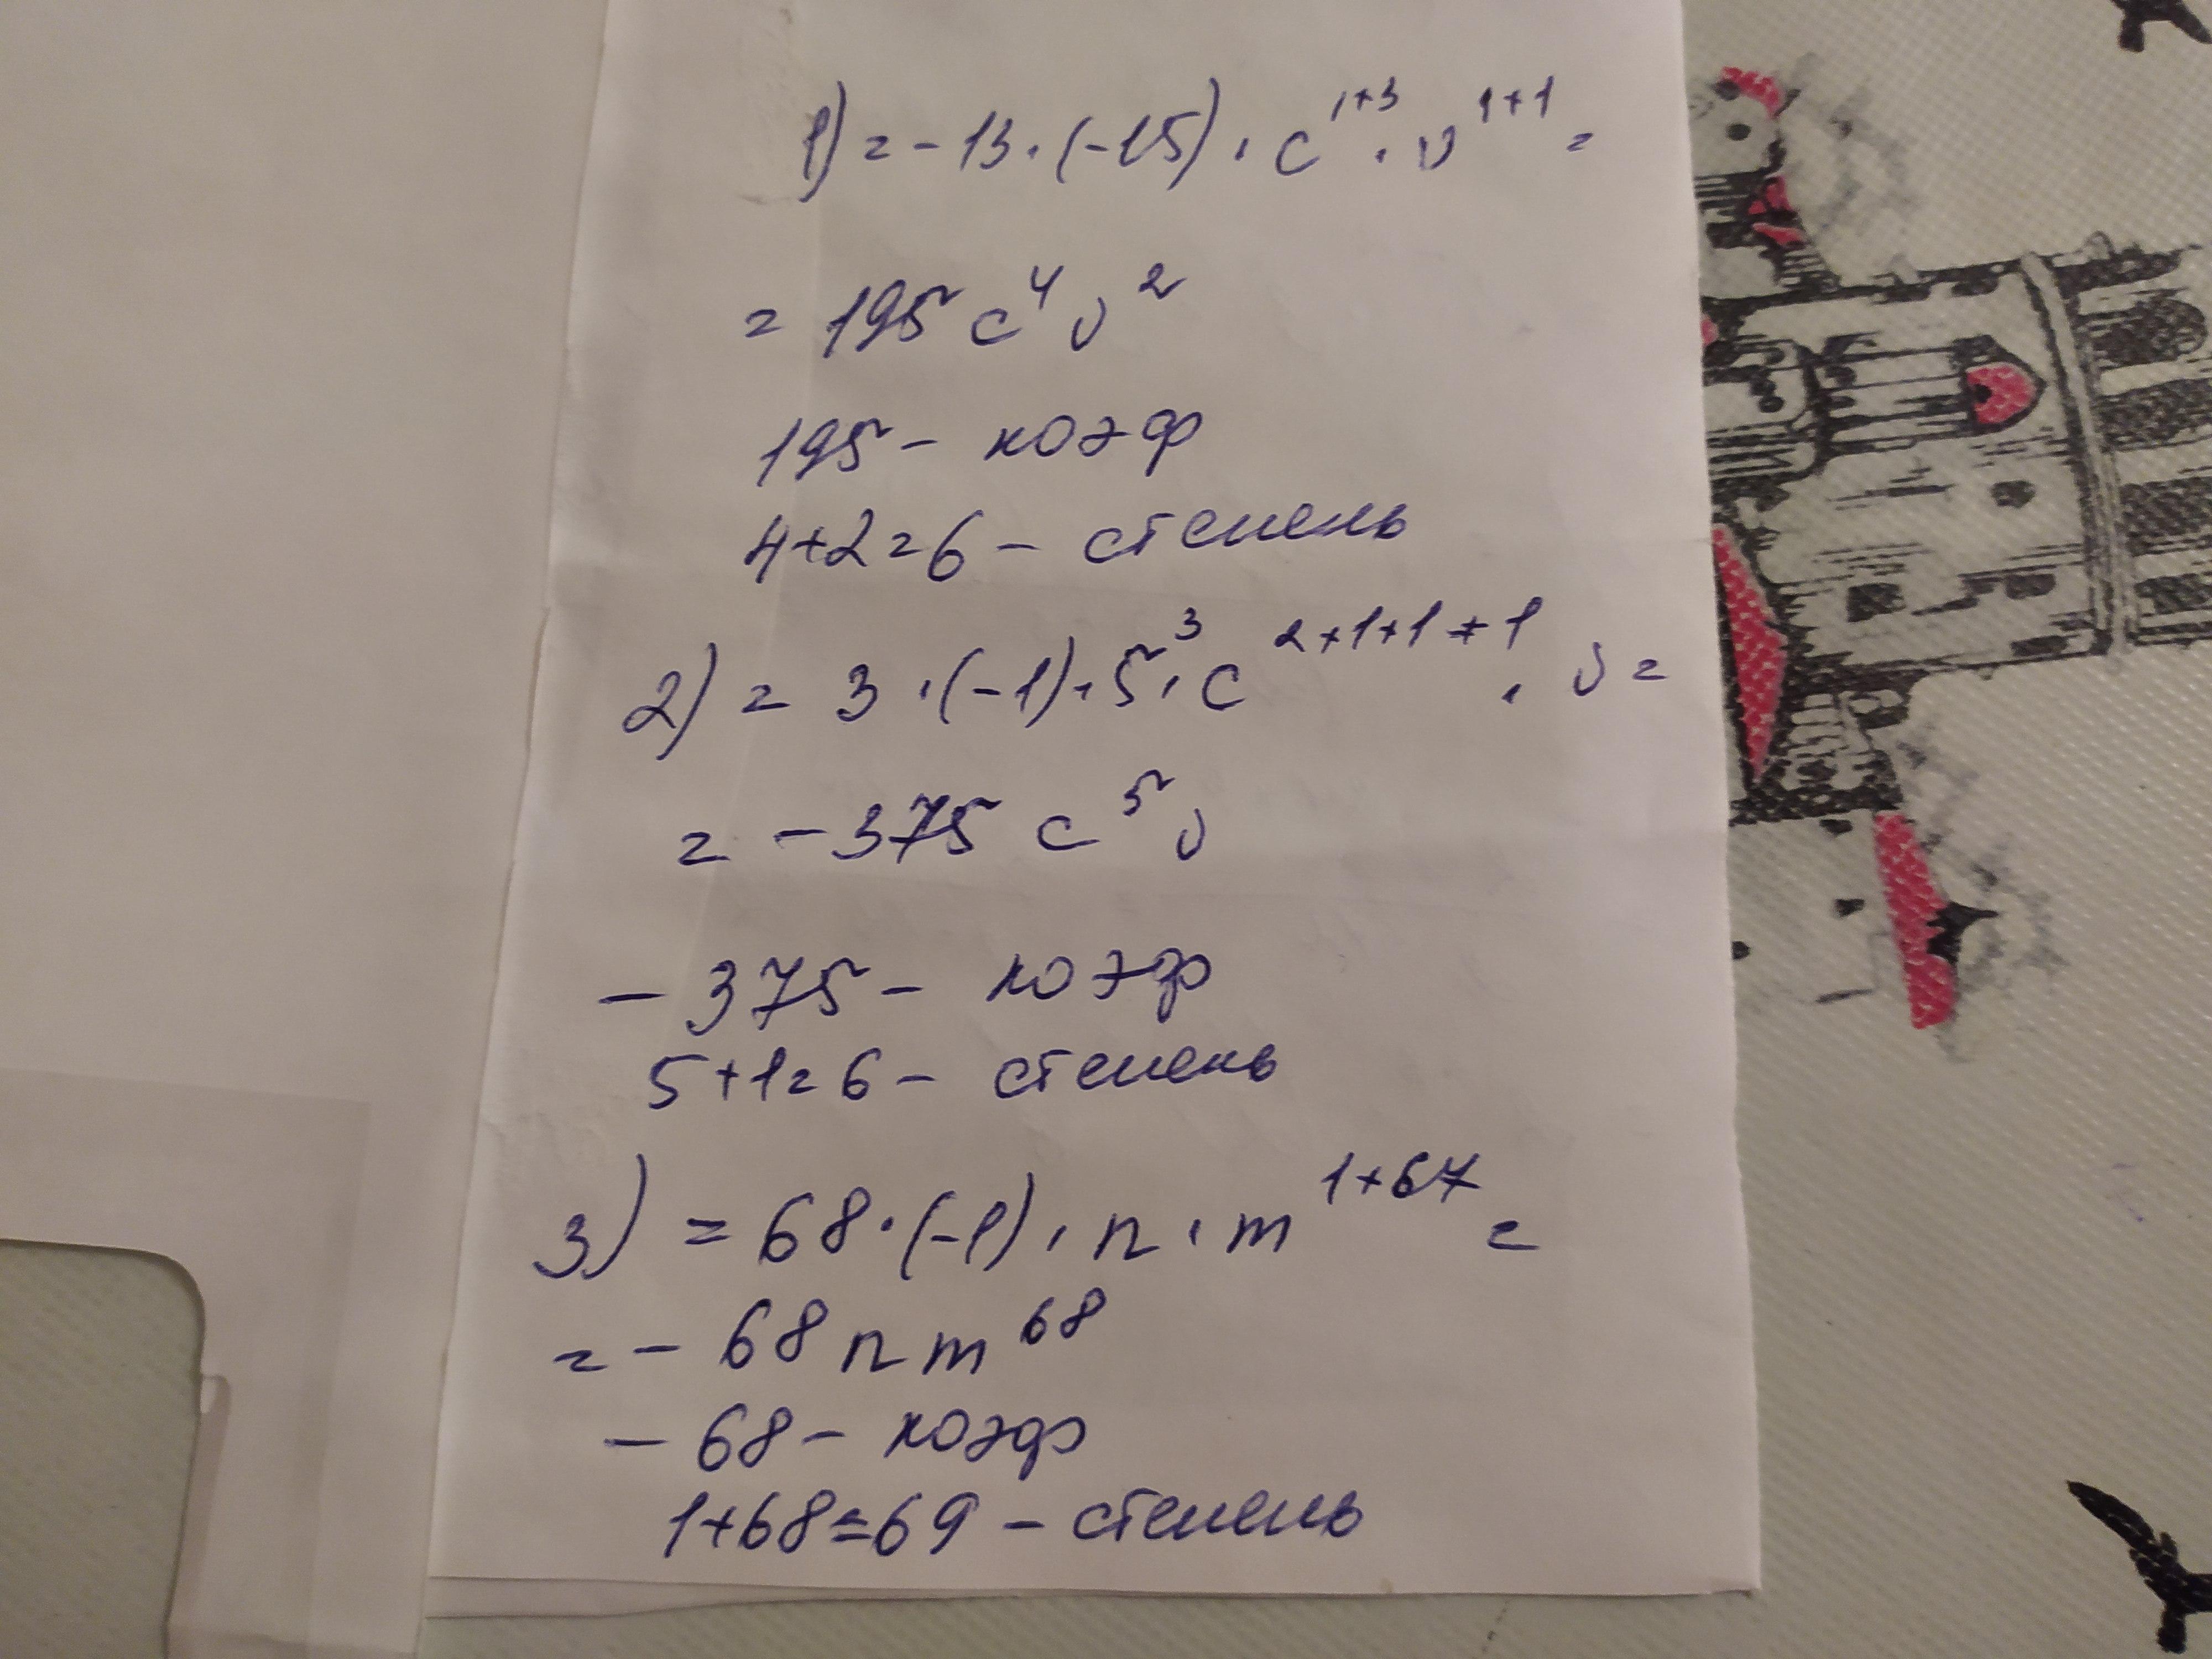 1) = -13 · (-15) · c^{1+3} · υ^{1+1} =
= 195 c⁴ υ²
195 - коэф
4+2=6 - степень
2) = 3 · (-1) · 5³ · c^{2+1+1+1} · υ =
= -375 c⁵ υ
-375 - коэф
5+1=6 - степень
3) = 68 · (-1) · n · m^{1+67} =
= -68 n m⁶⁸
-68 - коэф
1+68=69 - степень